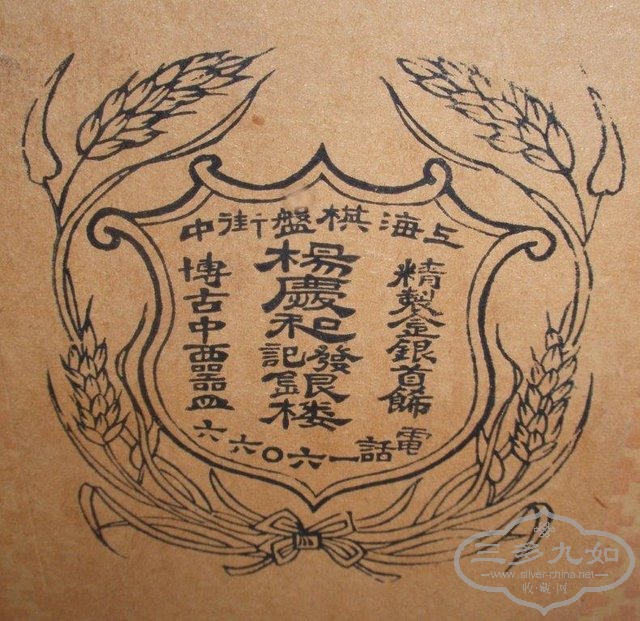 上海棋盤街中
精製金銀首飾
楊慶和發記銀楼
博古中西器皿
電話一六〇六六
三多九如
www.silver-china.net
收·藏·网